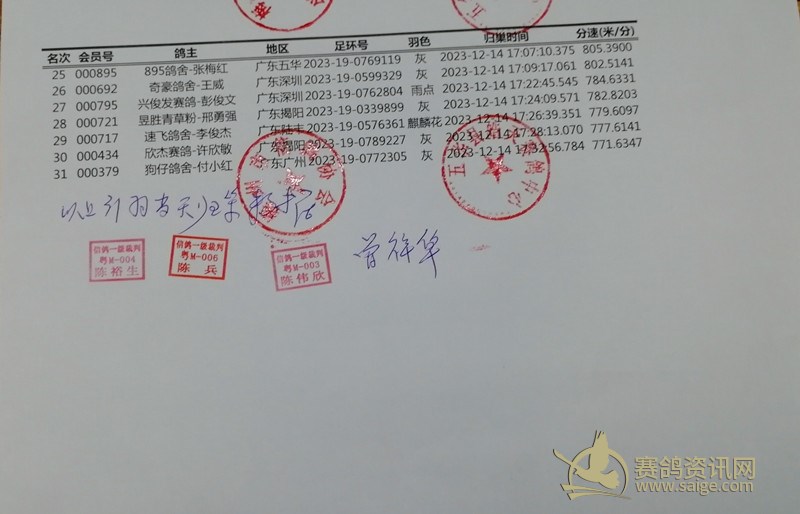 名次 会员号 鸽主 地区 足环号 羽色 归巢时间 分速(米/分)
25 000895 895鸽舍-张梅红 广东五华 2023-19-0769119 灰 2023-12-14 17:07:10.375 805.3900
26 000692 奇豪鸽舍-王威 广东深圳 2023-19-0599329 灰 2023-12-14 17:09:17.061 802.5141
27 000795 兴俊发赛鸽-彭俊文 广东深圳 2023-19-0762804 雨点 2023-12-14 17:22:45.545 784.6331
28 000721 昱胜青草粉-邢勇强 广东揭阳 2023-19-0339899 灰 2023-12-14 17:24:09.571 782.8203
29 000717 速飞鸽舍-李俊杰 广东陆丰 2023-19-0576361 麒麟花 2023-12-14 17:26:39.351 779.6097
30 000434 欣杰赛鸽-许欣敏 广东揭阳 2023-19-0789227 灰 2023-12-14 17:28:13.070 777.6141
31 000379 狗仔鸽舍-付小红 广东广州 2023-19-0772305 灰 2023-12-14 17:32:56.784 771.6347
以上31羽当天归巢
信鸽一级裁判
粤M-004
陈裕生
信鸽一级裁判
粤M-006
陈兵
信鸽一级裁判
粤M-003
陈伟欣
赛鸽资讯网
www.saige.com